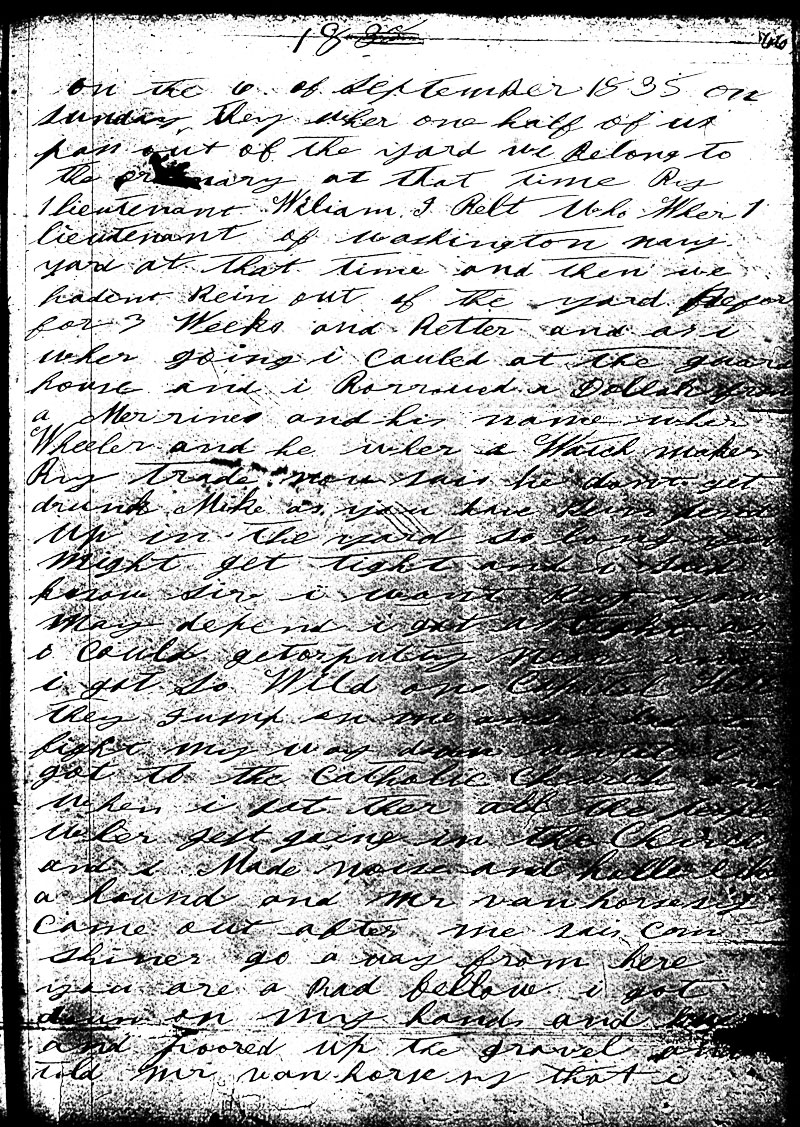 18
on the 6 of September 1835 on
sunday they wher one half of us
pas out of the yard we Belong to
the ordinary at that time By
1 lieutenant William J Belt Who Wher 1
lieutenant of washington navy
yard at that time and then we
hadent Bein out of the yard
for 3 Weeks and Better and as i
wher going i Cauled at the guard
house and i Borroued a Dollah from
a Merrines and his name wher
Wheeler and he wher a Watch maker
By trade now sais he dont get
drunk Mike as you have Bein pend
Up in the yard so long you
Might get tight and i said
know sir i wont But you
May depend i got as tight as
i Could
i got so Wild one Capital that
they Jump on me and
fight my way down
got to the Catholic Church and
when i got ther all the people
wher jest going in the Church
and i Made noise and hollo like
a hound and Mr vanhorseigh
Came out after me sais Com
Shiner go a way from here
you are a Bad fellow i got
down on my hands and knees
and poored up the gravel and
told Mr vanhorseigh that i